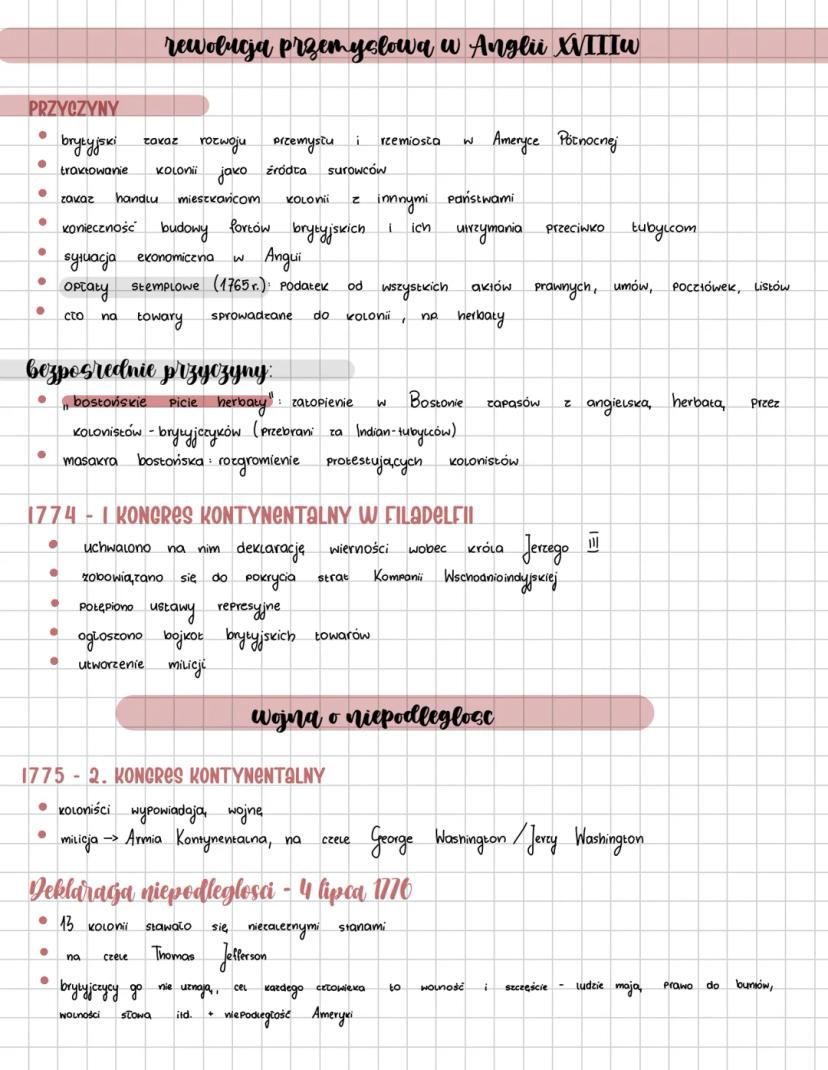 rewolucja przemysłowa w Anglii XVIIIw
PRZYCZYNY
brytyjski zakaz rozwoju przemysłu i rzemiosła w Ameryce Północnej
traktowanie kolonii jako źródła surowców
zakaz handlu mieszkańcom kolonii z innnymi państwami
konieczność budowy fortów brytyjskich i ich utrzymania przeciwko tubylcom
sytuacja ekonomiczna w Anglii
opłaty stemplowe (1765r.): podatek od wszystkich aktów prawnych, umów, pocztówek, listów
cło na towary sprowadzane do kolonii, np herbaty
bezpośrednie przyczyny:
„bostońskie picie herbaty": zatopienie w Bostonie zapasów z angielską herbatą przez
kolonistów - brytyjczyków (przebrani za Indian-tubylców)
masakra bostońska: rozgromienie protestujących kolonistów
1774 - I KONGRES KONTYNENTALNY W FILADELFII
uchwalono na nim deklarację wierności wobec króla Jerzego III
zobowiązano się do pokrycia strat Kompanii Wschodnioindyjskiej
potępiono ustawy represyjne
ogłoszono bojkot brytyjskich towarów
utworzenie milicji
wojna o niepodległosc
1775 - 2. KONGRES KONTYNENTALNY
koloniści wypowiadają wojnę
milicja -> Armia Kontynentalna, na czele George Washington / Jerzy Washington
Deklaracja niepodległosci - 4 lipca 1776
13 kolonii stawało się niezależnymi stanami
na czele Thomas Jefferson
brytyjczycy go nie uznają, cel każdego człowieka to wolność i szczęście - ludzie mają prawo do buntów,
wolności słowa itd. + niepodległość Ameryki